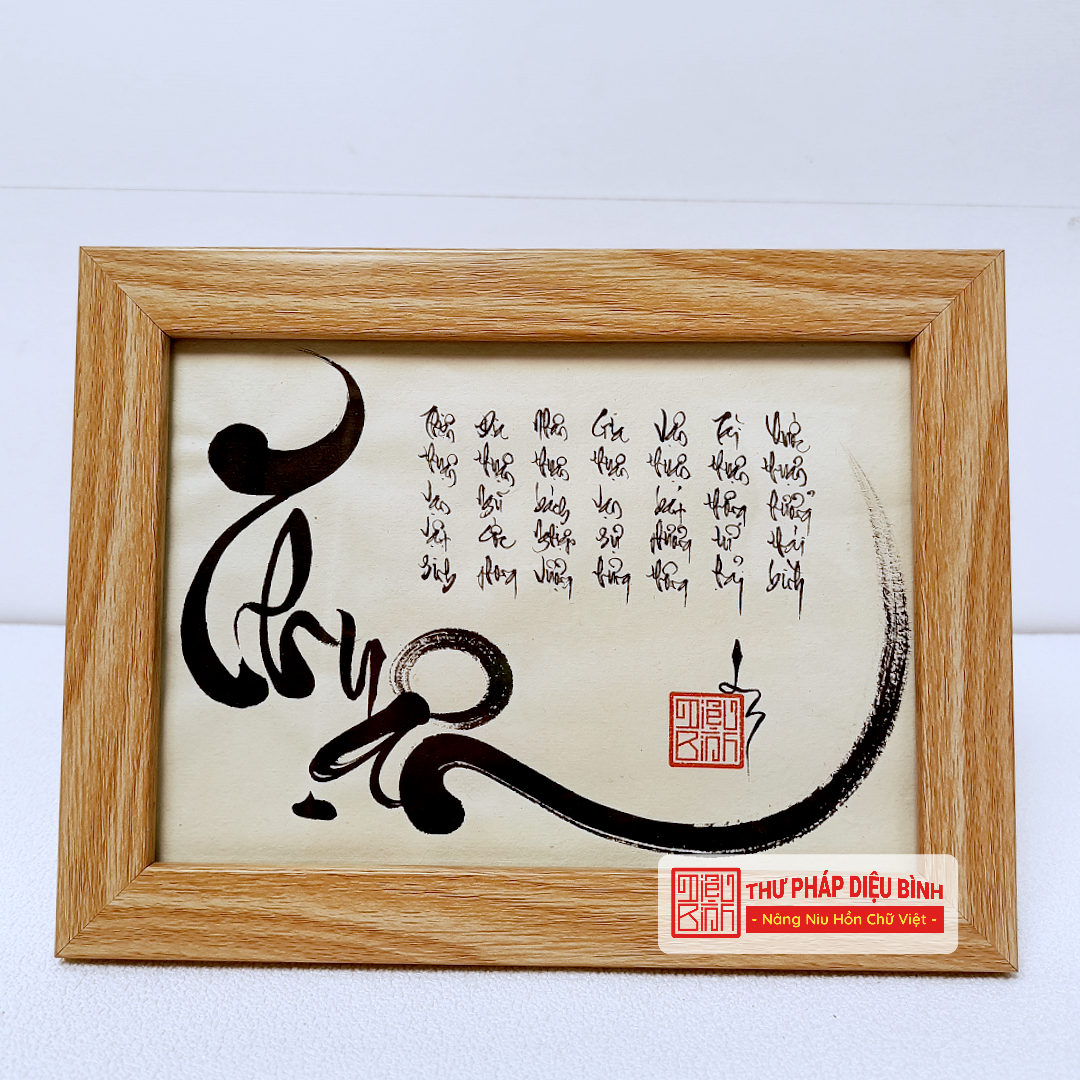 Thuận
Thiên thuận vạn vật sinh
Địa thuận ngũ cốc phong
Nhân thuận bách nghiệp vượng
Gia thuận vạn sự hưng
Vận thuận bát phương thông
Tài thuận thông tứ hải
thuận hưởng thái bình
Diệu
Bình
Diệu
Bình
THƯ PHÁP DIỆU BÌNH
- Nâng Niu Hồn Chữ Việt -